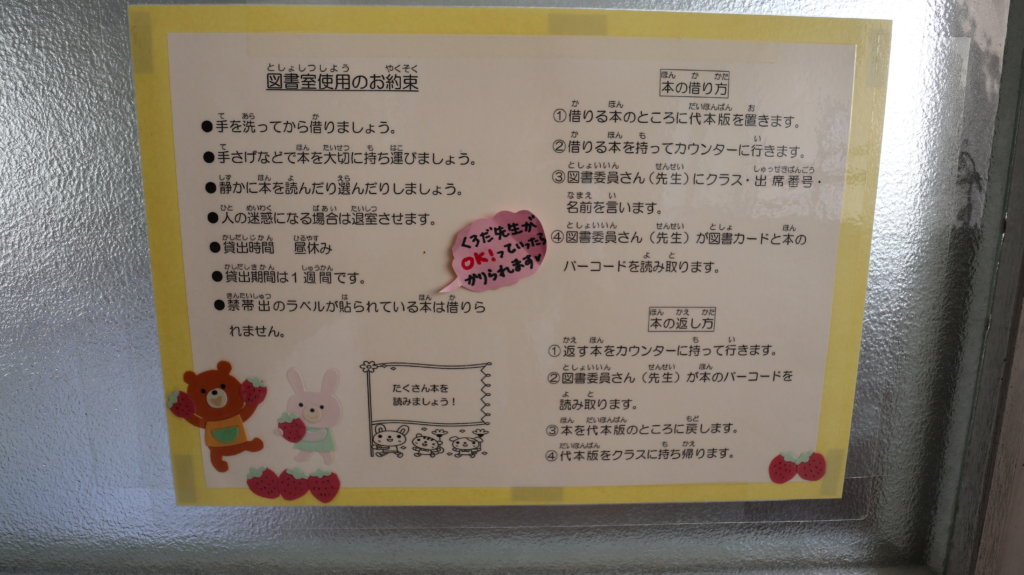 図書室使用のお約束
●手を洗ってから借りましょう。
●手さげなどで本を大切に持ち運びましょう。
●静かに本を読んだり選んだりしましょう。
●人の迷惑になる場合は退室させます。
●貸出時間　昼休み
●貸出期間は1週間です。
●禁帯出のラベルが貼られている本は借りら
れません。
くろだ先生が
OK!っていったら
かりられます♥
たくさん本を
読みましょう！
本の借り方
①借りる本のところに代本版を置きます。
②借りる本を持ってカウンターに行きます。
③図書委員さん（先生）にクラス・出席番号・
名前を言います。
④図書委員さん（先生）が図書カードと本の
バーコードを読み取ります。
本の返し方
①返す本をカウンターに持って行きます。
②図書委員さん（先生）が本のバーコードを
読み取ります。
③本を代本版のところに戻します。
④代本版をクラスに持ち帰ります。